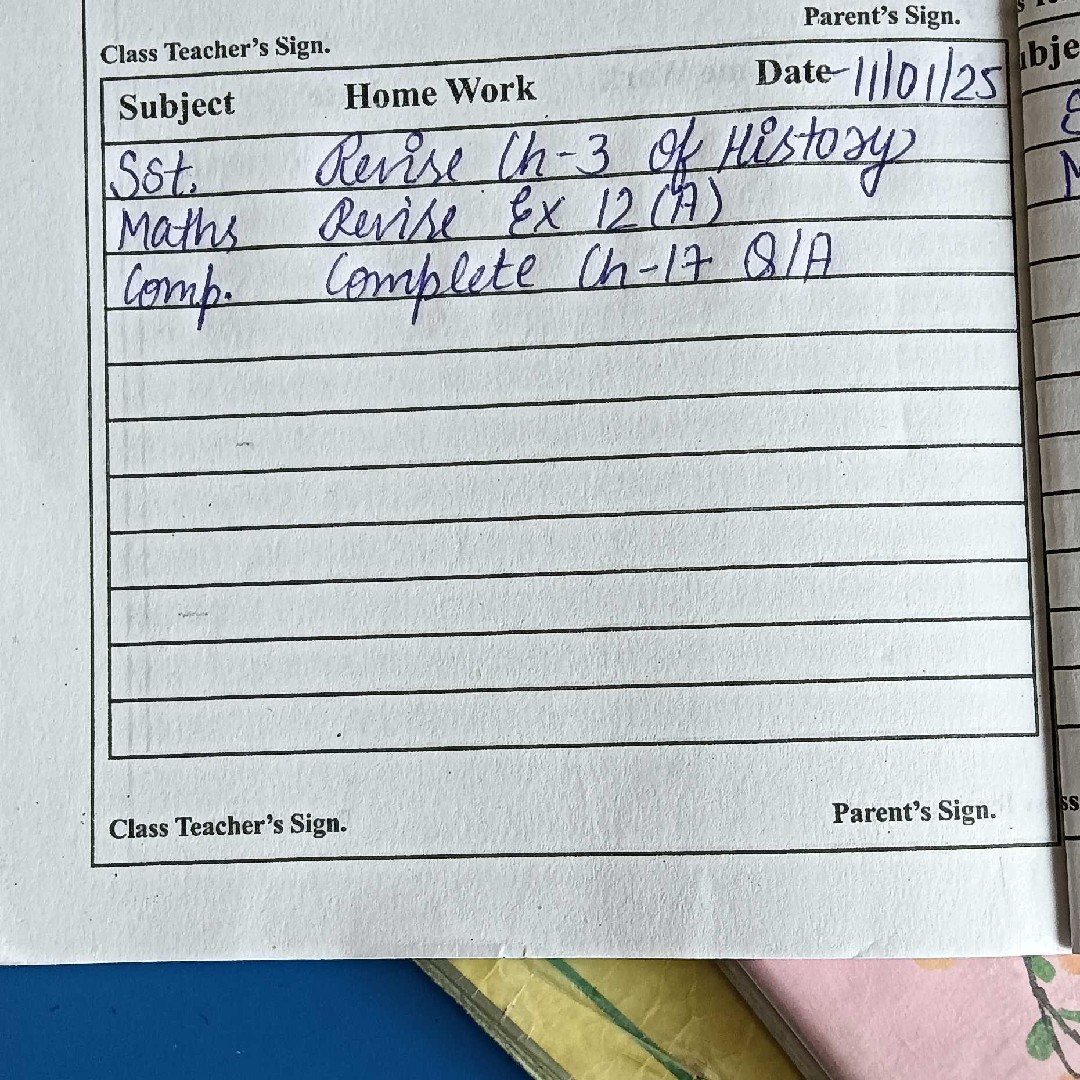 Parent's Sign.
Class Teacher's Sign.
Subject Home Work Date 11/01/25
Sst. Revise Ch-3 Of History
Maths Revise Ex 12 (A)
Comp. Complete Ch-17 Q/A
Class Teacher's Sign.
Parent's Sign.